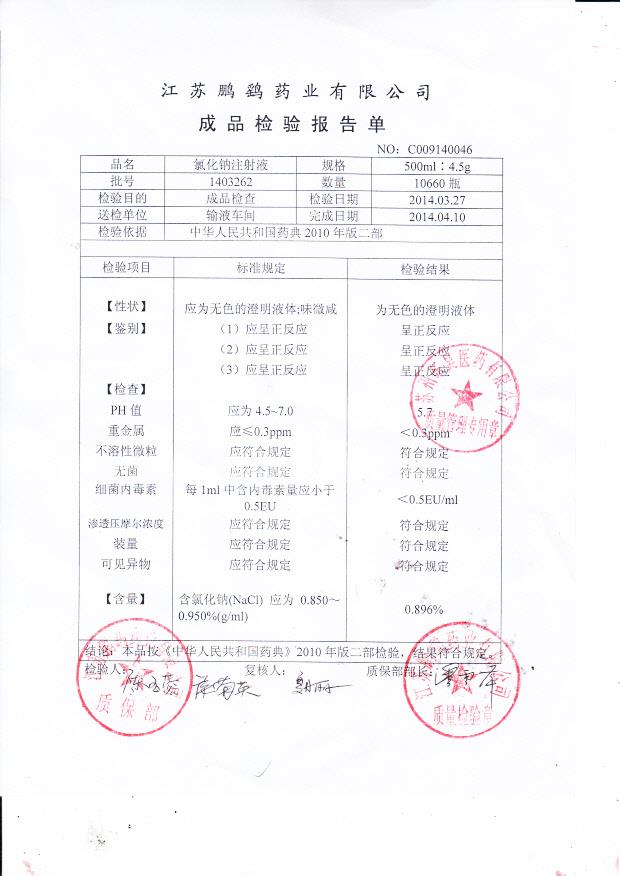 江苏鹏鹞药业有限公司
成品检验报告单
NO：C009140046
品名 氯化钠注射液 规格 500ml：4.5g
批号 1403262 数量 10660 瓶
检验目的 成品检查 检验日期 2014.03.27
送检单位 输液车间 完成日期 2014.04.10
检验依据 中华人民共和国药典 2010 年版二部
检验项目 标准规定 检验结果
【性状】 应为无色的澄明液体;味微咸 为无色的澄明液体
【鉴别】 （1）应呈正反应 呈正反应
（2）应呈正反应 呈正反应
（3）应呈正反应 呈正反应
【检查】
PH 值 应为 4.5~7.0 5.7
重金属 应≤0.3ppm ＜0.3ppm
不溶性微粒 应符合规定 符合规定
无菌 应符合规定 符合规定
细菌内毒素 每 1ml 中含内毒素量应小于 0.5EU ＜0.5EU/ml
渗透压摩尔浓度 应符合规定 符合规定
装量 应符合规定 符合规定
可见异物 应符合规定 符合规定
【含量】 含氯化钠(NaCl) 应为 0.850～ 0.950%(g/ml) 0.896%
结论：本品按《中华人民共和国药典》2010 年版二部检验，结果符合规定。
检验人： 复核人： 质保部部长：
质量管理专用章
质保部
质量检验章